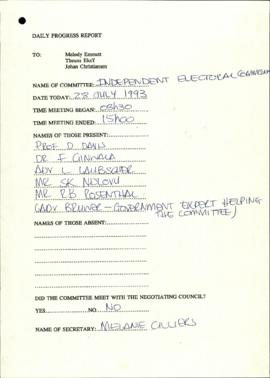 DAILY PROGRESS REPORT
TO: Melody Emmett
Theuns Eloff
Johan Christiansen
NAME OF COMMITTEE: INDEPENDENT ELECTORAL COMMISSION
DATE TODAY: 28 JULY 1993
TIME MEETING BEGAN: 08h30
TIME MEETING ENDED: 15h00
NAMES OF THOSE PRESENT:
PROF D. DAVIS
DR F GINWALA
ADV L LAUBSCHER
MR SK NDLOVU
MR RB ROSENTHAL
(ADV BRUWER - GOVERNMENT EXPERT HELPING
THE COMMITTEE)
NAMES OF THOSE ABSENT:
DID THE COMMITTEE MEET WITH THE NEGOTIATING COUNCIL?
YES NO NO
NAME OF SECRETARY: MELANE CILLIERS